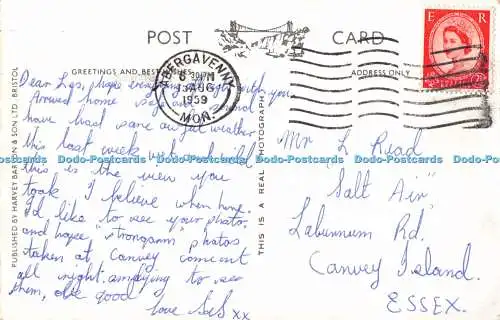 POST CARD
GREETINGS AND BEST WISHES
ADDRESS ONLY
E R
ABERGAVENNY
13 AUG
1959
MON.
Dear Les, hope everything alright with you.
Arrived home safe and sound
have had same awful weather
this last week
this is the view you
took I believe when here.
I'd like to see your photos.
and hope "strongarm" photos
taken at Canvey come out
all right. to see
them, ole good
love xx
Mr L Read
"Salt Air"
Laburnum Rd.
Canvey Island.
ESSEX.
PUBLISHED BY HARVEY BARTON & SON LTD. BRISTOL
THIS IS A REAL PHOTOGRAPH
Dodo-Postcards Dodo-Postcards Dodo-Postcards Dodo-Postcards Dodo-Postcards Dodo-Postcards